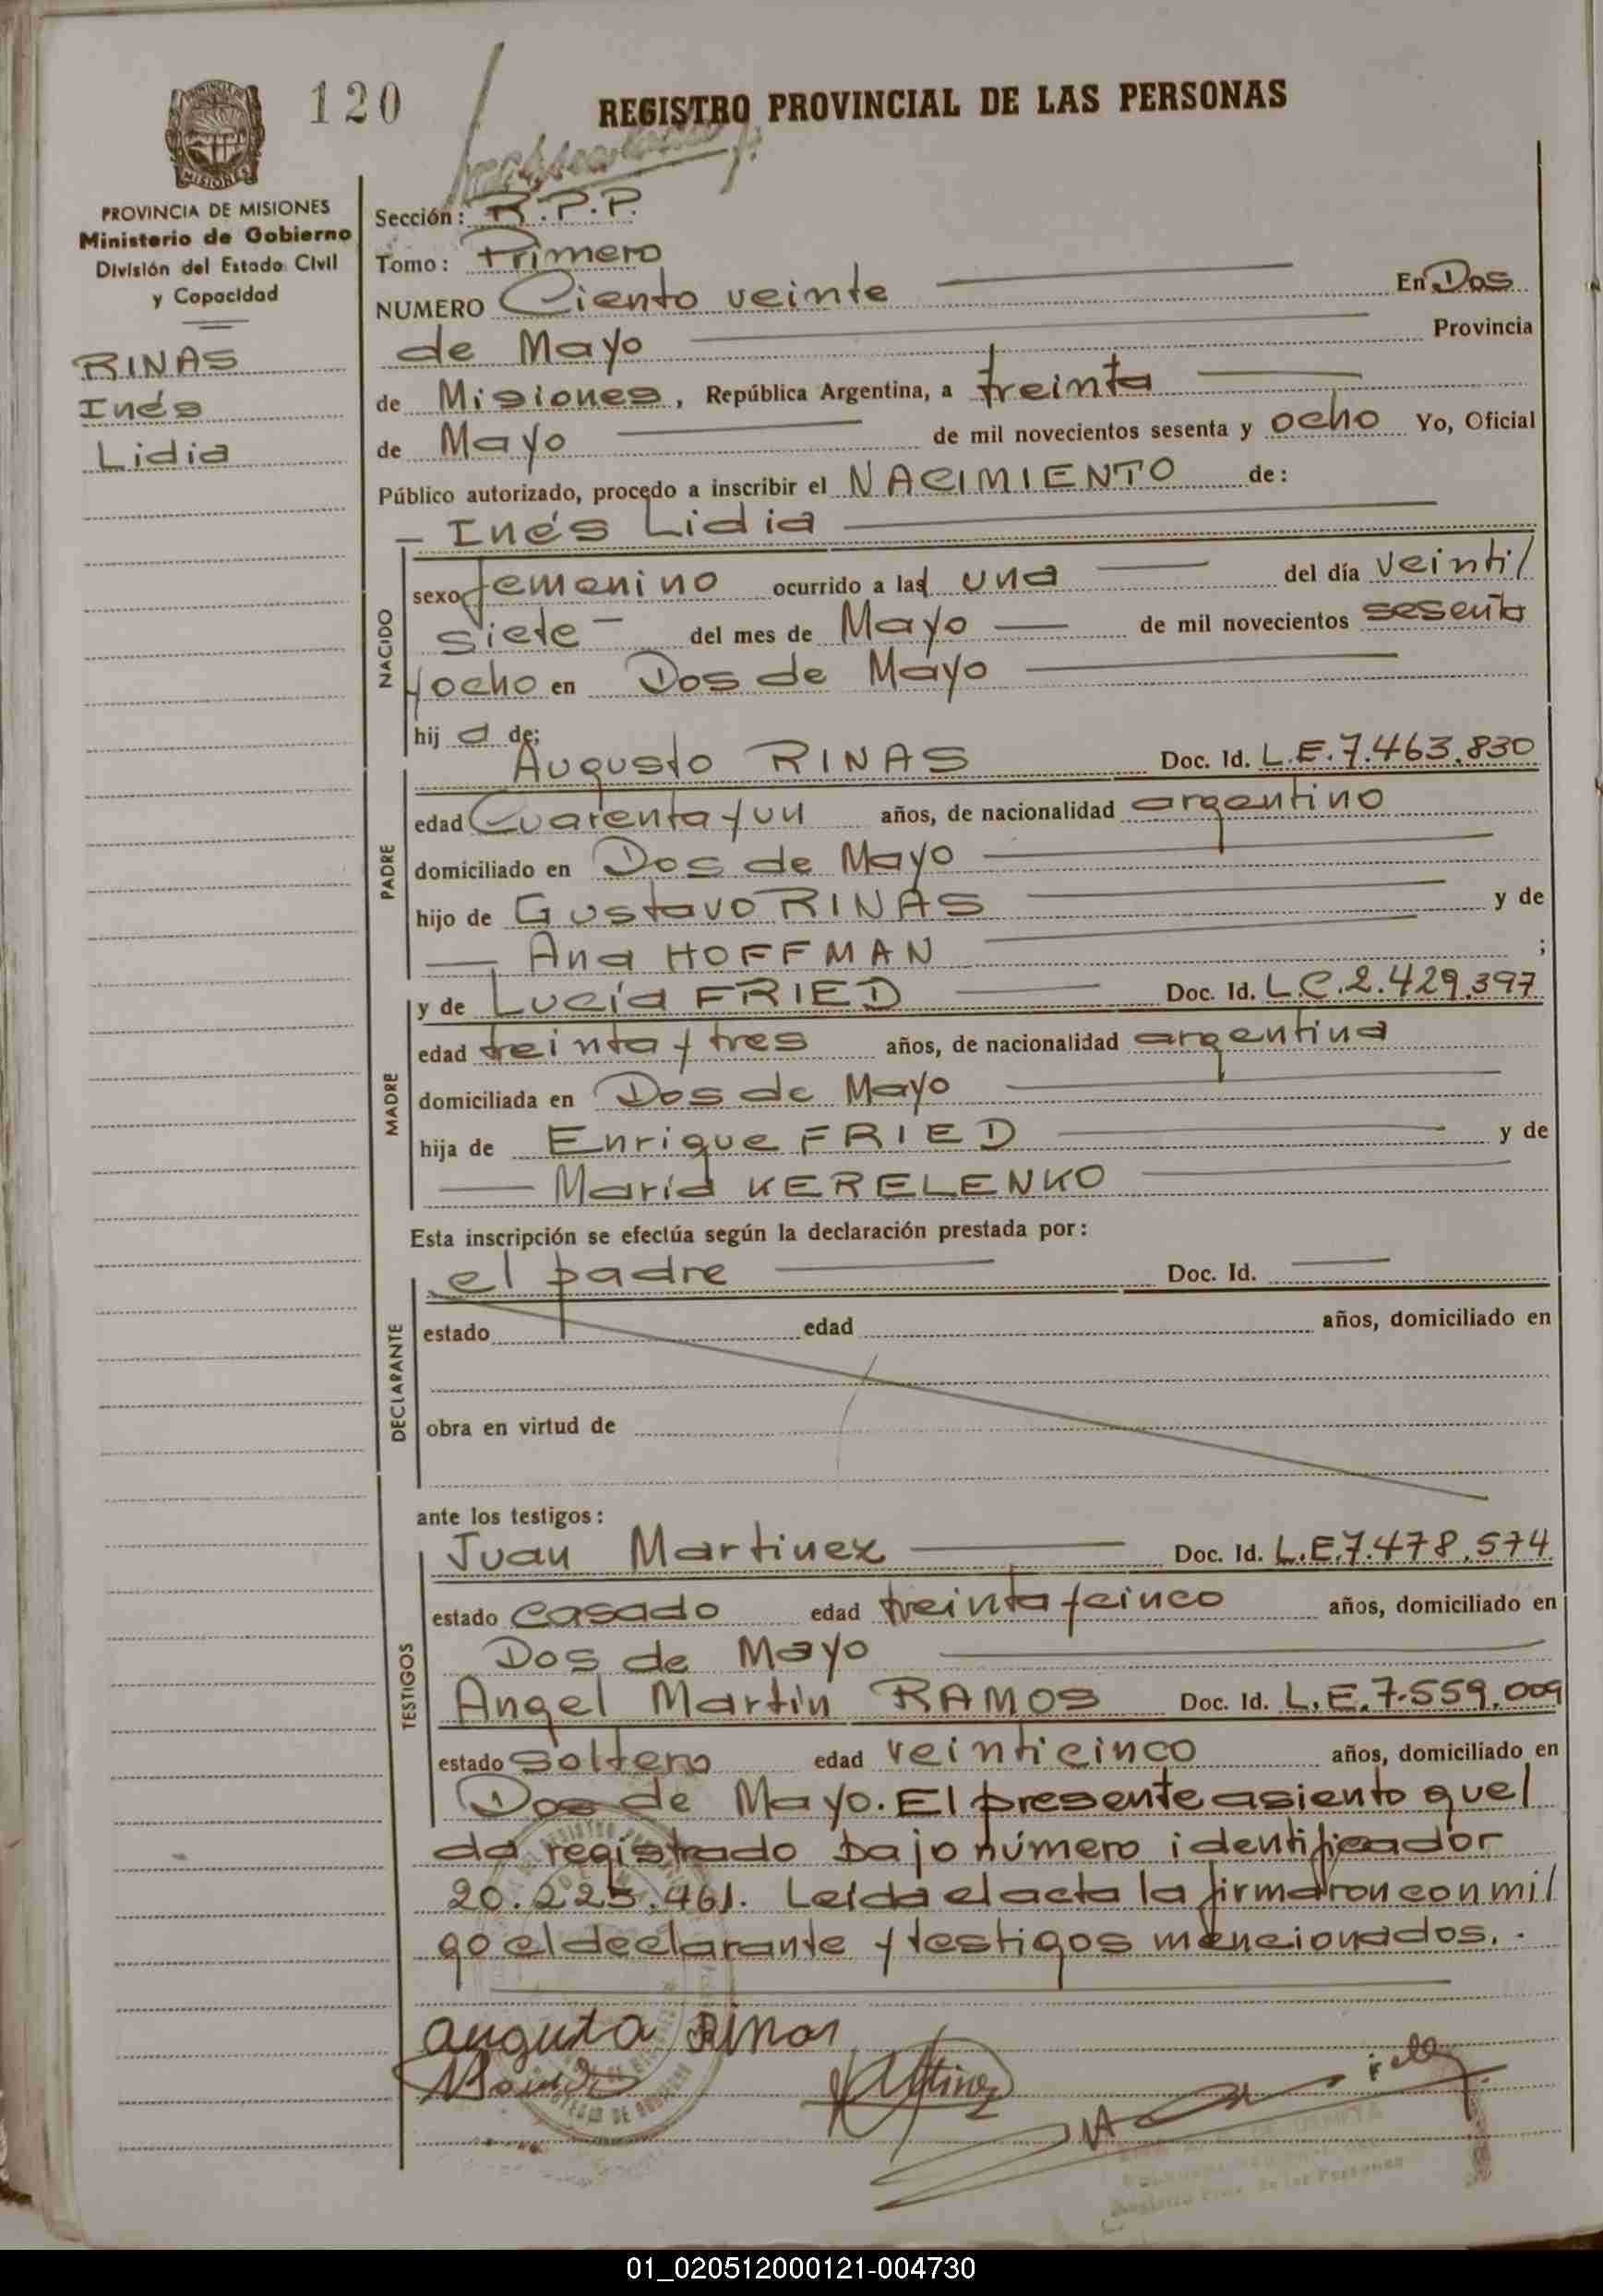 120
REGISTRO PROVINCIAL DE LAS PERSONAS
MISIONES
PROVINCIA DE MISIONES
Ministerio de Gobierno
División del Estado Civil
y Capacidad
RINAS
Inés
Lidia
Sección: R.P.P.
Tomo: Primero
NUMERO Ciento veinte En Dos
de Mayo Provincia
de Misiones, República Argentina, a treinta
de Mayo de mil novecientos sesenta y ocho Yo, Oficial
Público autorizado, procedo a inscribir el NACIMIENTO de:
Inés Lidia
NACIDO
sexo femenino ocurrido a las una del día veinti/
siete del mes de Mayo de mil novecientos sesenta
y ocho en Dos de Mayo
hij a de;
PADRE
Augusto RINAS Doc. Id. L.E.7.463.830
edad Cuarenta y un años, de nacionalidad argentino
domiciliado en Dos de Mayo
hijo de Gustavo RINAS y de
Ana HOFFMAN ;
MADRE
y de Lucía FRIED Doc. Id. L.C.2.429.397
edad treinta y tres años, de nacionalidad argentina
domiciliada en Dos de Mayo
hija de Enrique FRIED y de
María KERELENKO
Esta inscripción se efectúa según la declaración prestada por:
DECLARANTE
el padre Doc. Id.
estado edad años, domiciliado en
obra en virtud de
ante los testigos:
TESTIGOS
Juan Martinez Doc. Id. L.E.7.478.574
estado casado edad treinta y cinco años, domiciliado en
Dos de Mayo
Angel Martín RAMOS Doc. Id. L.E.7.559.009
estado soltero edad veinticinco años, domiciliado en
Dos de Mayo. El presente asiento que/
da registrado bajo número identificador
20.225.461. Leída el acta la firmaron conmi/
go el declarante y testigos mencionados.
augusto Rinas
Registro Prov. de las Personas
01_020512000121-004730